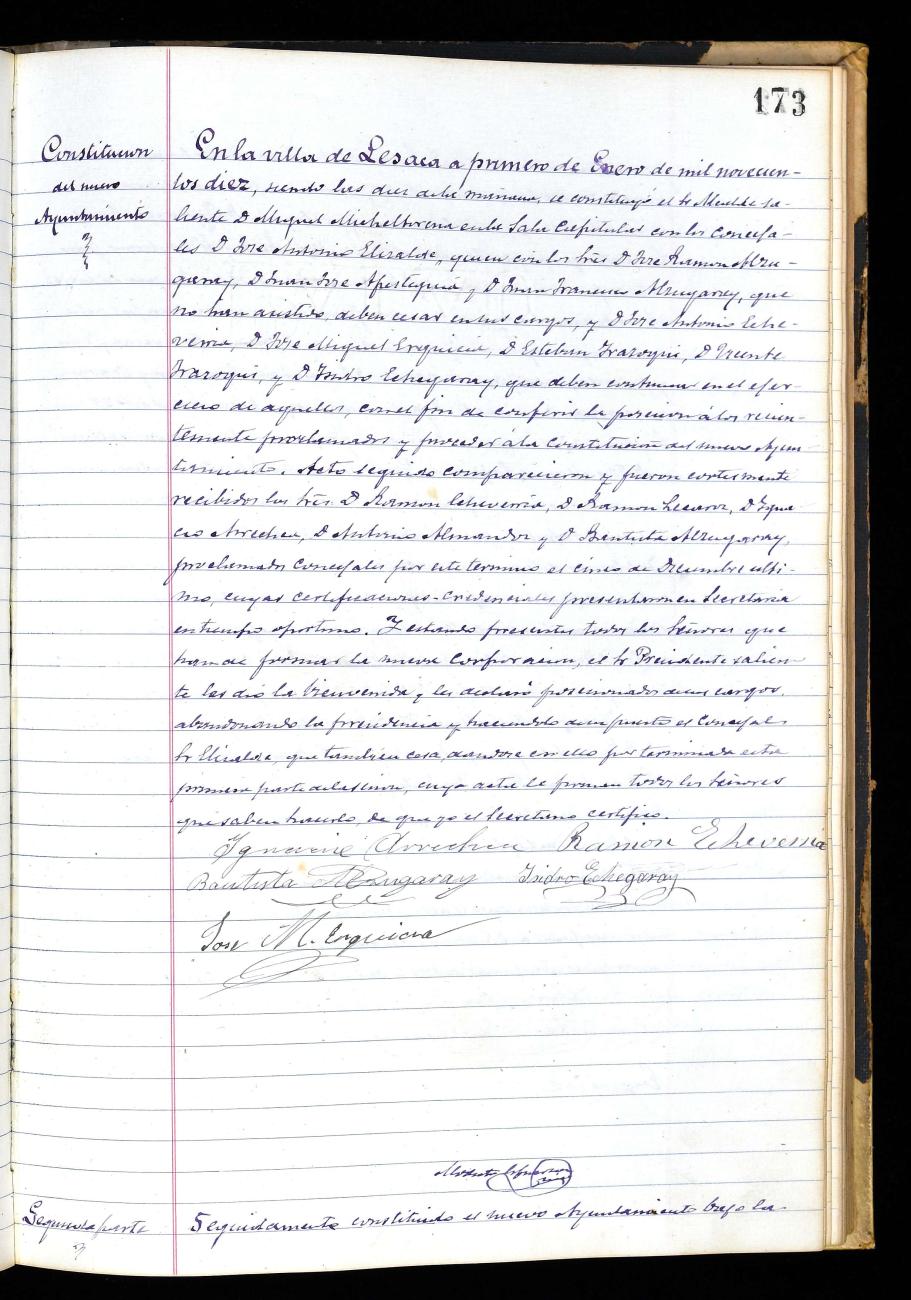 173
Constitucion
del nuevo
Ayuntamiento
En la villa de Lesaca a primero de Enero de mil novecien-
tos diez, siendo las diez de la mañana, se constituyó el Sr Alcalde sa-
liente D Miguel Micheltorena en la Sala Capitular con los Conceja-
les D Jose Antonio Elizalde, quien con los Sres D Jose Ramon Alzu-
garay, D Juan Jose Apestegua y D Juan Francisco Alzugaray, que
no han asistido, deben cesar en sus cargos, y D Jose Antonio Eche-
verria, D Jose Miguel Erquicia, D Esteban Irazoqui, D Vicente
Irazoqui, y D Isidro Echegaray, que deben continuar en el ejer-
cicio de aquellos, con el fin de conferir la posesion á los recien-
temente proclamados y proceder á la constitucion del nuevo Ayun-
tamiento. Acto seguido comparecieron y fueron cortesmente
recibidos los Sres D Ramon Echeverria, D Ramon Lecaroz, D Igna-
cio Arrechea, D Antonio Almandoz y D Bautista Alzugaray,
proclamados Concejales por este termino el cinco de Diciembre ulti-
mo, cuyas certificaciones-credenciales presentaron en Secretaria
en tiempo oportuno. Y estando presentes todos los Señores que
han de formar la nueva Corporacion, el Sr Presidente salien-
te les dio la bienvenida y les declaró posesionados de sus cargos,
abandonando la presidencia y haciendolo de su puesto el Concejal
Sr Elizalde, que tambien cesa, dandose con ello por terminada esta
primera parte de la sesion, cuya acta la firman todos los Señores
que saben hacerlo, de que yo el Secretario certifico.
Ignacio Arrechea Ramon Echeverria
Bautista Alzugaray Isidro Echegaray
Jose M. Erquicia
Segunda parte
Seguidamente constituido el nuevo Ayuntamiento bajo la